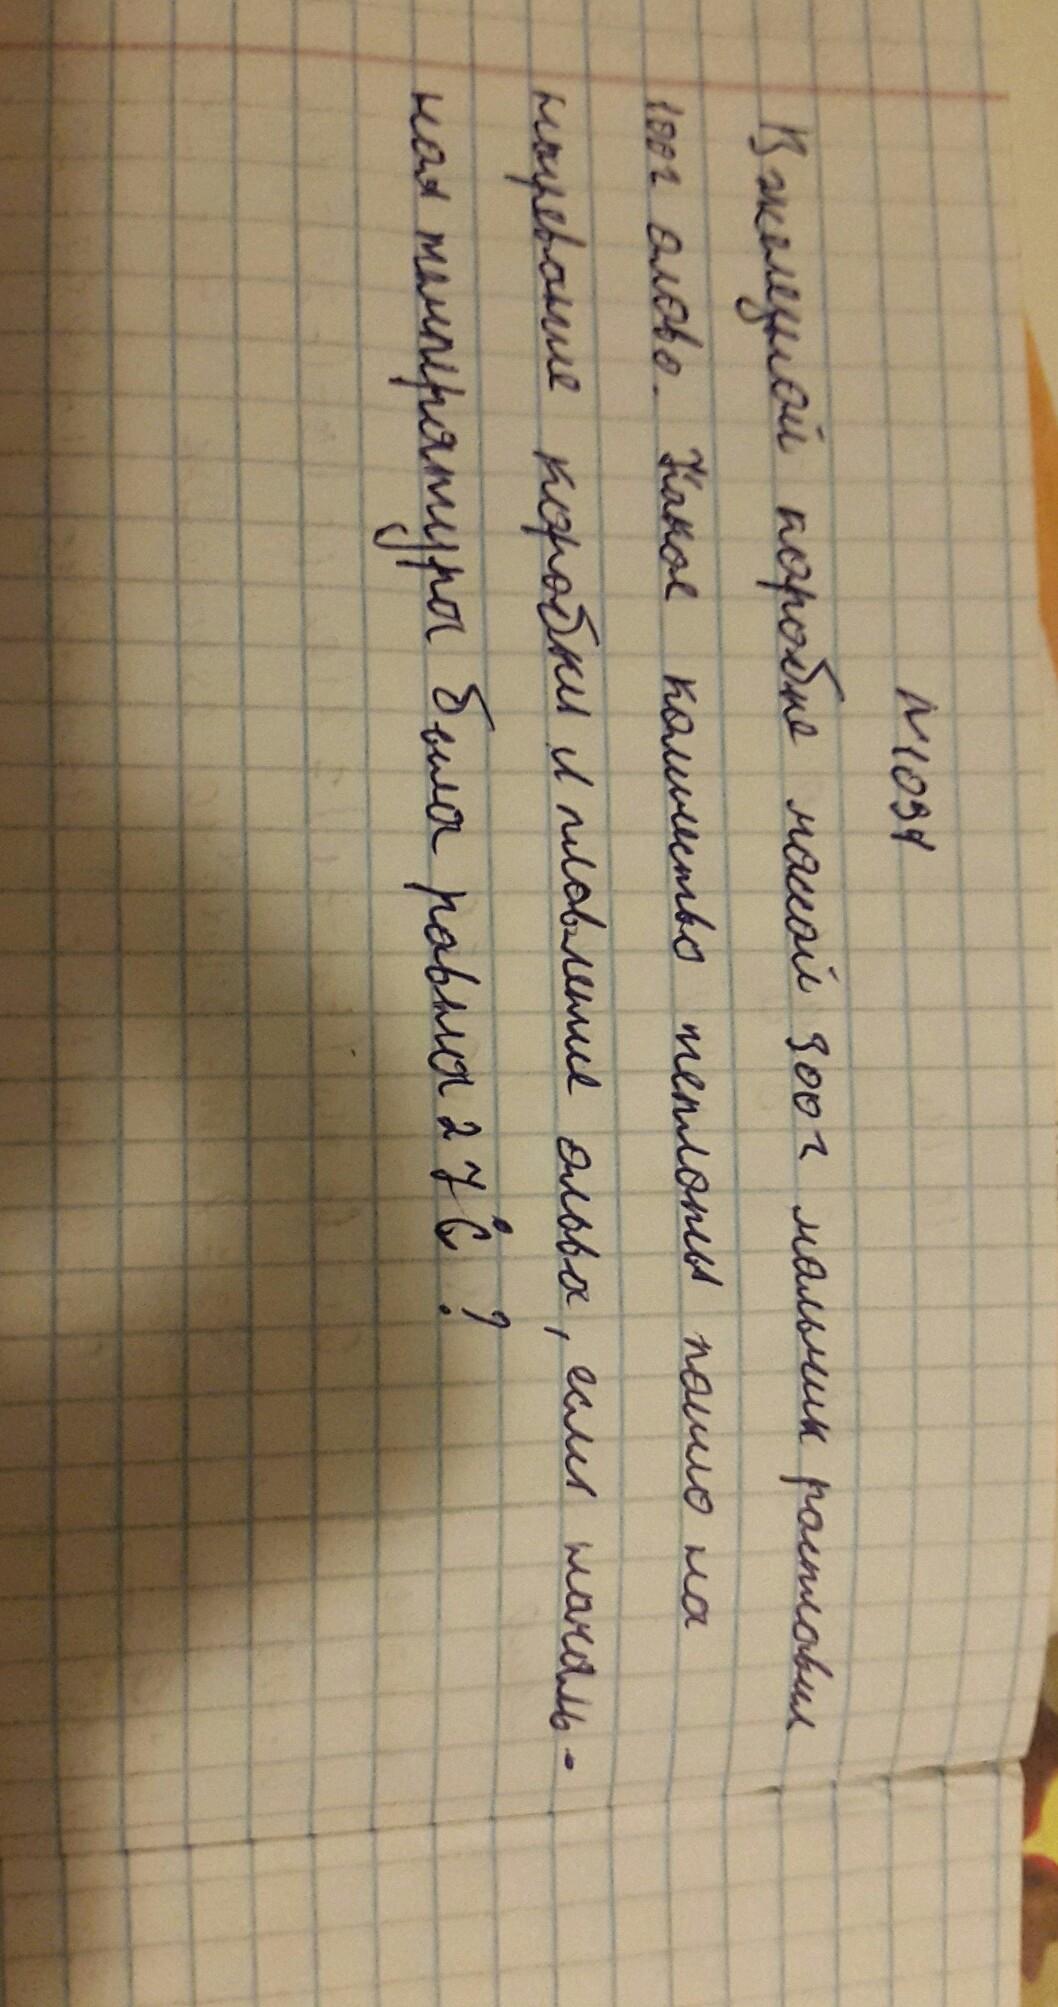 N 1091
В железной коробке массой 300г мальчик расплавил
100г олово. Какое количество теплоты пошло на
нагревание коробки и плавление олова, если началь-
ная температура была равна 27°С ?